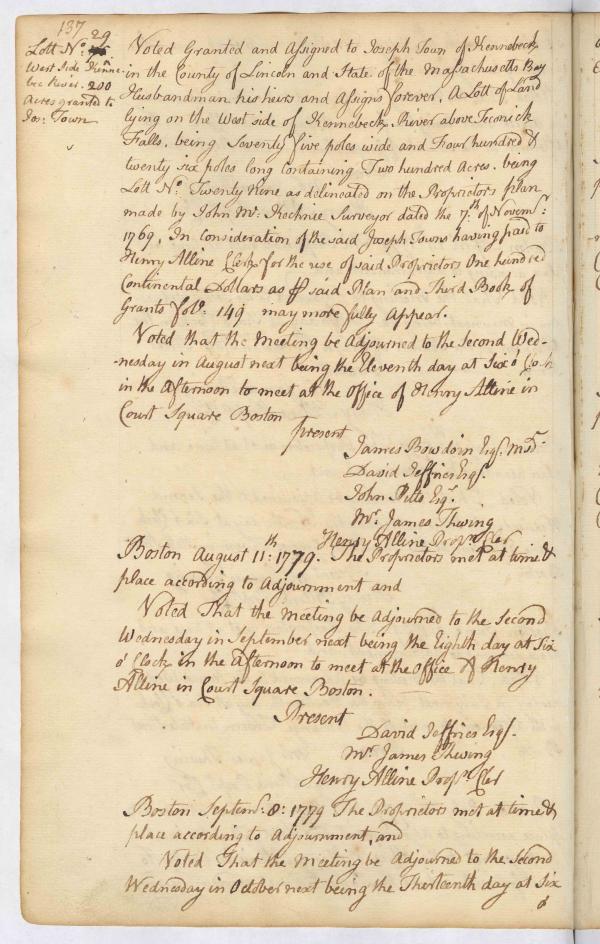 137
29
Lott No.
West Side Kenne-
bec River. 200
Acres granted to
Jos: Town
Voted Granted and Assigned to Joseph Town of Kennebeck
in the County of Lincoln and State of the Massachusetts Bay
Husbandman his heirs and Assigns forever, A Lott of Land
lying on the West side of Kennebeck River above Teconick
Falls, being Seventy five poles wide and Four hundred &
twenty six poles long containing Two hundred Acres. being
Lott No. Twenty Nine as delineated on the Proprietors plan
made by John Mc. Kechnie Surveyor dated the 7th of Novemr:
1769, In Consideration of the said Joseph Towns having paid to
Henry Alline Clerk for the use of said Proprietors One hundred
Continental Dollars as  said Plan and Third Book of
Grants fol: 149 may more fully Appear.
Voted that the Meeting be Adjourned to the Second Wed-
-nesday in August next being the Eleventh day at Six o' Clock
in the Afternoon to meet at the Office of Henry Alline in
Court Square Boston
present
James Bowdoin Esqr. Modr.
David Jeffries Esqr.
John Pitts Esqr.
Mr. James Thwing
Henry Alline Propr. Cler
Boston August 11th: 1779. The Proprietors met at time &
place according to Adjournment and
Voted That the Meeting be Adjourned to the Second
Wednesday in September next being the Eighth day at Six
o' Clock in the Afternoon to meet at the Office of Henry
Alline in Court Square Boston.
Present
David Jeffries Esqr.
Mr. James Thwing
Henry Alline Propr. Cler
Boston Septemr. 8: 1779 The Proprietors met at time &
place according to Adjournment, and
Voted That the Meeting be Adjourned to the Second
Wednesday in October next being the Thirteenth day at Six
o'